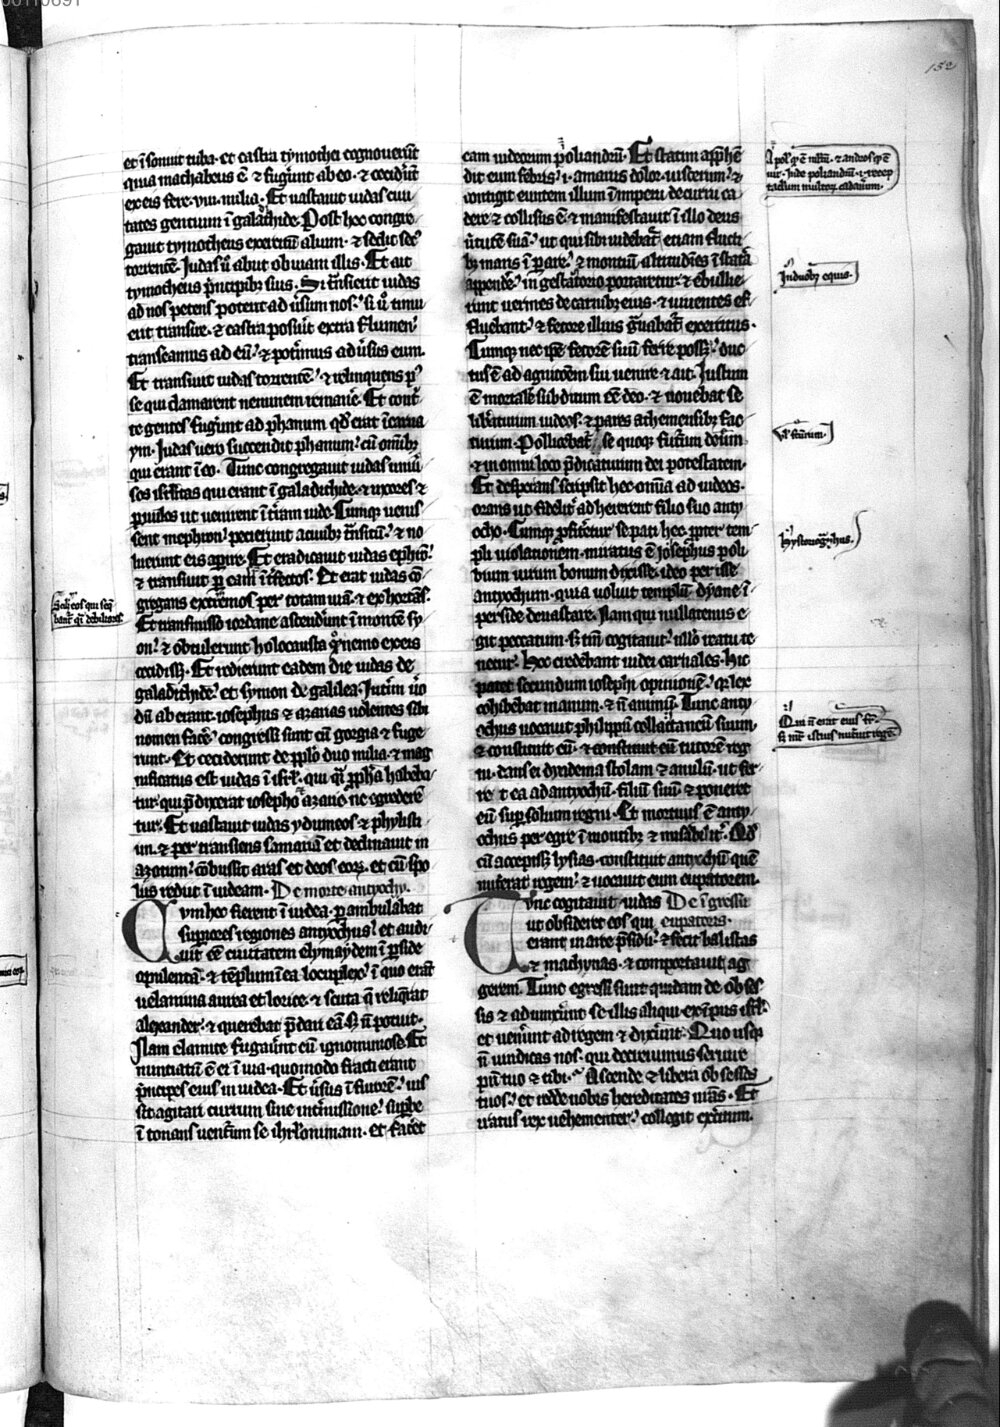 00110691
152
et ī sonuit tuba · et castra tymothei cognouerūt
quia machabeus ē · ⁊ fugerūt ab eo · ⁊ cecidr̄ūt
ex eis fere · viii · milia · Et uastauit iudas ciui
tates gentium ī galathide · Post hec congre
gauit tymotheus exercitū alium · ⁊ sedit sec̄
torrentē · Judas ū abiit obuiam illis · Et ait
tymotheus p̄ncipibꝫ suis · Si tn̄sierit iudas
ad nos potens poterit aduersum nos · si ū timu
erit transire · ⁊ castra posuerit extra flumen
transeamus ad eū · ⁊ poterimus aduersus eum ·
Et transiuit iudas torrentē · ⁊ relinquens p̄
se qui clamarent neminem remanere · Et cont̄
te gentes fugerūt ad phanum qd̄ erat ī carna
ym · Judas uero succendit phanum cū om̄ibꝫ
qui erant ī eo · Tunc congregauit iudas uniū
sos isrl̄itas qui erant ī galadithide · ⁊ uxores ⁊
paruulos ut uenirent ī tr̄am iude · Cumqꝫ uenis
sent mephron petierunt a ciuibꝫ tn̄situ · ⁊ no
luerunt eis aperire · Et eradicauit iudas ephrō
⁊ transiuit per eam ī terfectos · Et erat iudas cō
gregans extremos per totam uiā · ⁊ exhortās ·
Et transmisso iordane ascenderūt ī montē sy
on · ⁊ obtulerunt holocausta qd̄ nemo ex eis
cecidissꝫ · Et redierunt eadem die iudas de
galadithide · et symon de galilea · Interim ūo
dū aberant · iosephus ⁊ azarias uolentes sibi
nomen facere congressi sunt cū gorgia ⁊ fuge
runt · Et ceciderunt de pplo duo milia · ⁊ mag
nificatus est iudas ī isrl̄ · qui qi ppha habeba
tur qui p̄dixerat iosepho ⁊ azarie ne egrederē
tur · Et uastauit iudas ydumeos ⁊ phylisti
im · ⁊ per transiens samariā et declinauit in
azotum · cōbussit aras et deos eoꝝ · et cū spo
liis rediit ī iudeam · De morte antyochy ·
Cvm hec fierent ī iudea · perambulabat
superiores regiones antyochus · et audi
uit ēē ciuitatem elymaydem ī perside
opulentā · ⁊ tēplum ī ea locuplex · ī quo erāt
uelamina aurea et lorice · ⁊ scuta q̄ reliquerat
alexander · ⁊ querebat p̄dari eā · ⁊ n̄ potuit ·
Nam elamite fugauerūt eū ignominiose · Et
nunciatū ē ei ī uia · quomodo fracti erant
p̄ncipes eius in iudea · Et uersus ī furorē · ius
sit agitari currum sine intermissione · superbe
ī tonans uenturum se iherl̄oniman · et facere
eam iudeorum poliandrū · Et statim app̄hē
dit eum febris · amarus dolor uiscerum · ⁊
contigit euntem illum ī impetu de curru ca
dere · ⁊ collisus ē · ⁊ manifestauit ī illo deus
uirtutē suā · ut qui sibi uidebatur etiam flucti
bꝫ maris ī perare · ⁊ montiū altitudīes ī statera
appendere · in gestatorio portaretur · ⁊ ebullie
runt uermes de carnibꝫ eius · ⁊ uiuentes ef
fluebant · ⁊ fetore illius grauabatur exercitus ·
Cumqꝫ nec ipē fetorē suū ferre possꝫ · duc
tus ē ad agnitōem sui uenire · ⁊ ait · Iustum
ē mortalē subditum ēē deo · ⁊ uouebat se
liberaturum iudeos · ⁊ pares atheniensibꝫ fac
turum · Pollicebatur se quoqꝫ futurum
⁊ in omni loco p̄dicaturum dei potestatem ·
Et desperans scripsit hec omnia ad iudeos ·
orans ut fideliter adhererent filio suo anty
ocho · Cumqꝫ profiteretur se pati hec propter tem
pli uiolationem · miratus ē iosephus poli
bium uirum bonum dixisse · ideo perisse
antyochum · quia uoluit templū dyane ī
perside deuastare · Nam qui nullatenus e
git peccatum · ⁊ tm̄ cogitauit · illo reatu te
netur · Hec credebant iudei carnales · Hic
patet secundum iosephi opinionē · qr̄ lex
cohibebat manum · ⁊ n̄ animū · Tunc anty
ochus uocauit philippū collactaneū suum
⁊ constituit eū · ⁊ constituit eū tutorē reg
ni · dans ei dyadema stolam ⁊ anulū · ut fer
re t ea ad antyochū · filiū suū · ⁊ poneret
eū super solium regni · Et mortuus ē anty
ochus peregre ī montibꝫ ⁊ miserabiliter ·
cū accepissꝫ lysias · constituit antyochū quē
nutierat regem · ⁊ uocauit eum eupatorem ·
Tvnc cogitauit iudas De ī gressu
ut obsideret eos qui eupatoris ·
erant in arce p̄sidii · ⁊ fecit balistas
⁊ machynas · ⁊ comportauit ag
gerem · Tunc egressi sunt quidam de obses
sis · ⁊ adiunxerunt se illis aliqui · ex ipīus isrl̄
et uenerunt ad regem · ⁊ dixerunt · Quo usqꝫ
n̄ uindicas nos · qui decreuimus seruire
patri tuo ⁊ tibi · Ascende ⁊ libera obsessos
tuos · et redde nobis hereditates nr̄as · Et
iratus rex uehementer · collegit exercitum ·
A polꝰ qꝫ ē multū · ⁊ andros qꝫ ē
uir · Inde poliandrū · i · recep
taculum multoꝝ cadauerum ·
In duobꝫ equis ·
ul̄ futurum ·
hystoriographus ·
Qm̄ n̄ erat eius fr̄
⁊ mr̄ istius nutriuit regē
scilicet eos qui seq
bant̄ qi debiliores